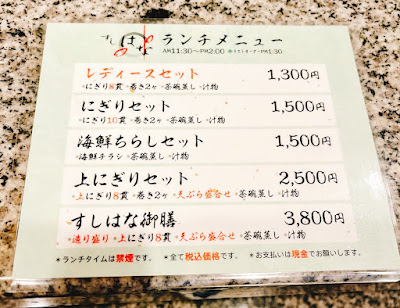 すし はな ランチメニュー
AM11:30~PM2:00 ラストオーダーPM1:30
レディースセット 1,300円
•にぎり8貫 •巻き2ヶ •茶碗蒸し •汁物
にぎりセット 1,500円
•にぎり10貫 •巻き2ヶ •茶碗蒸し •汁物
海鮮ちらしセット 1,500円
海鮮チラシ •茶碗蒸し •汁物
上にぎりセット 2,500円
•上にぎり8貫 •巻き2ヶ •天ぷら盛合せ •茶碗蒸し •汁物
すしはな御膳 3,800円
•造り盛り •上にぎり8貫 •天ぷら盛合せ •茶碗蒸し •汁物
*ランチタイムは禁煙です。 *全て税込価格です。 *お支払いは現金でお願いします。